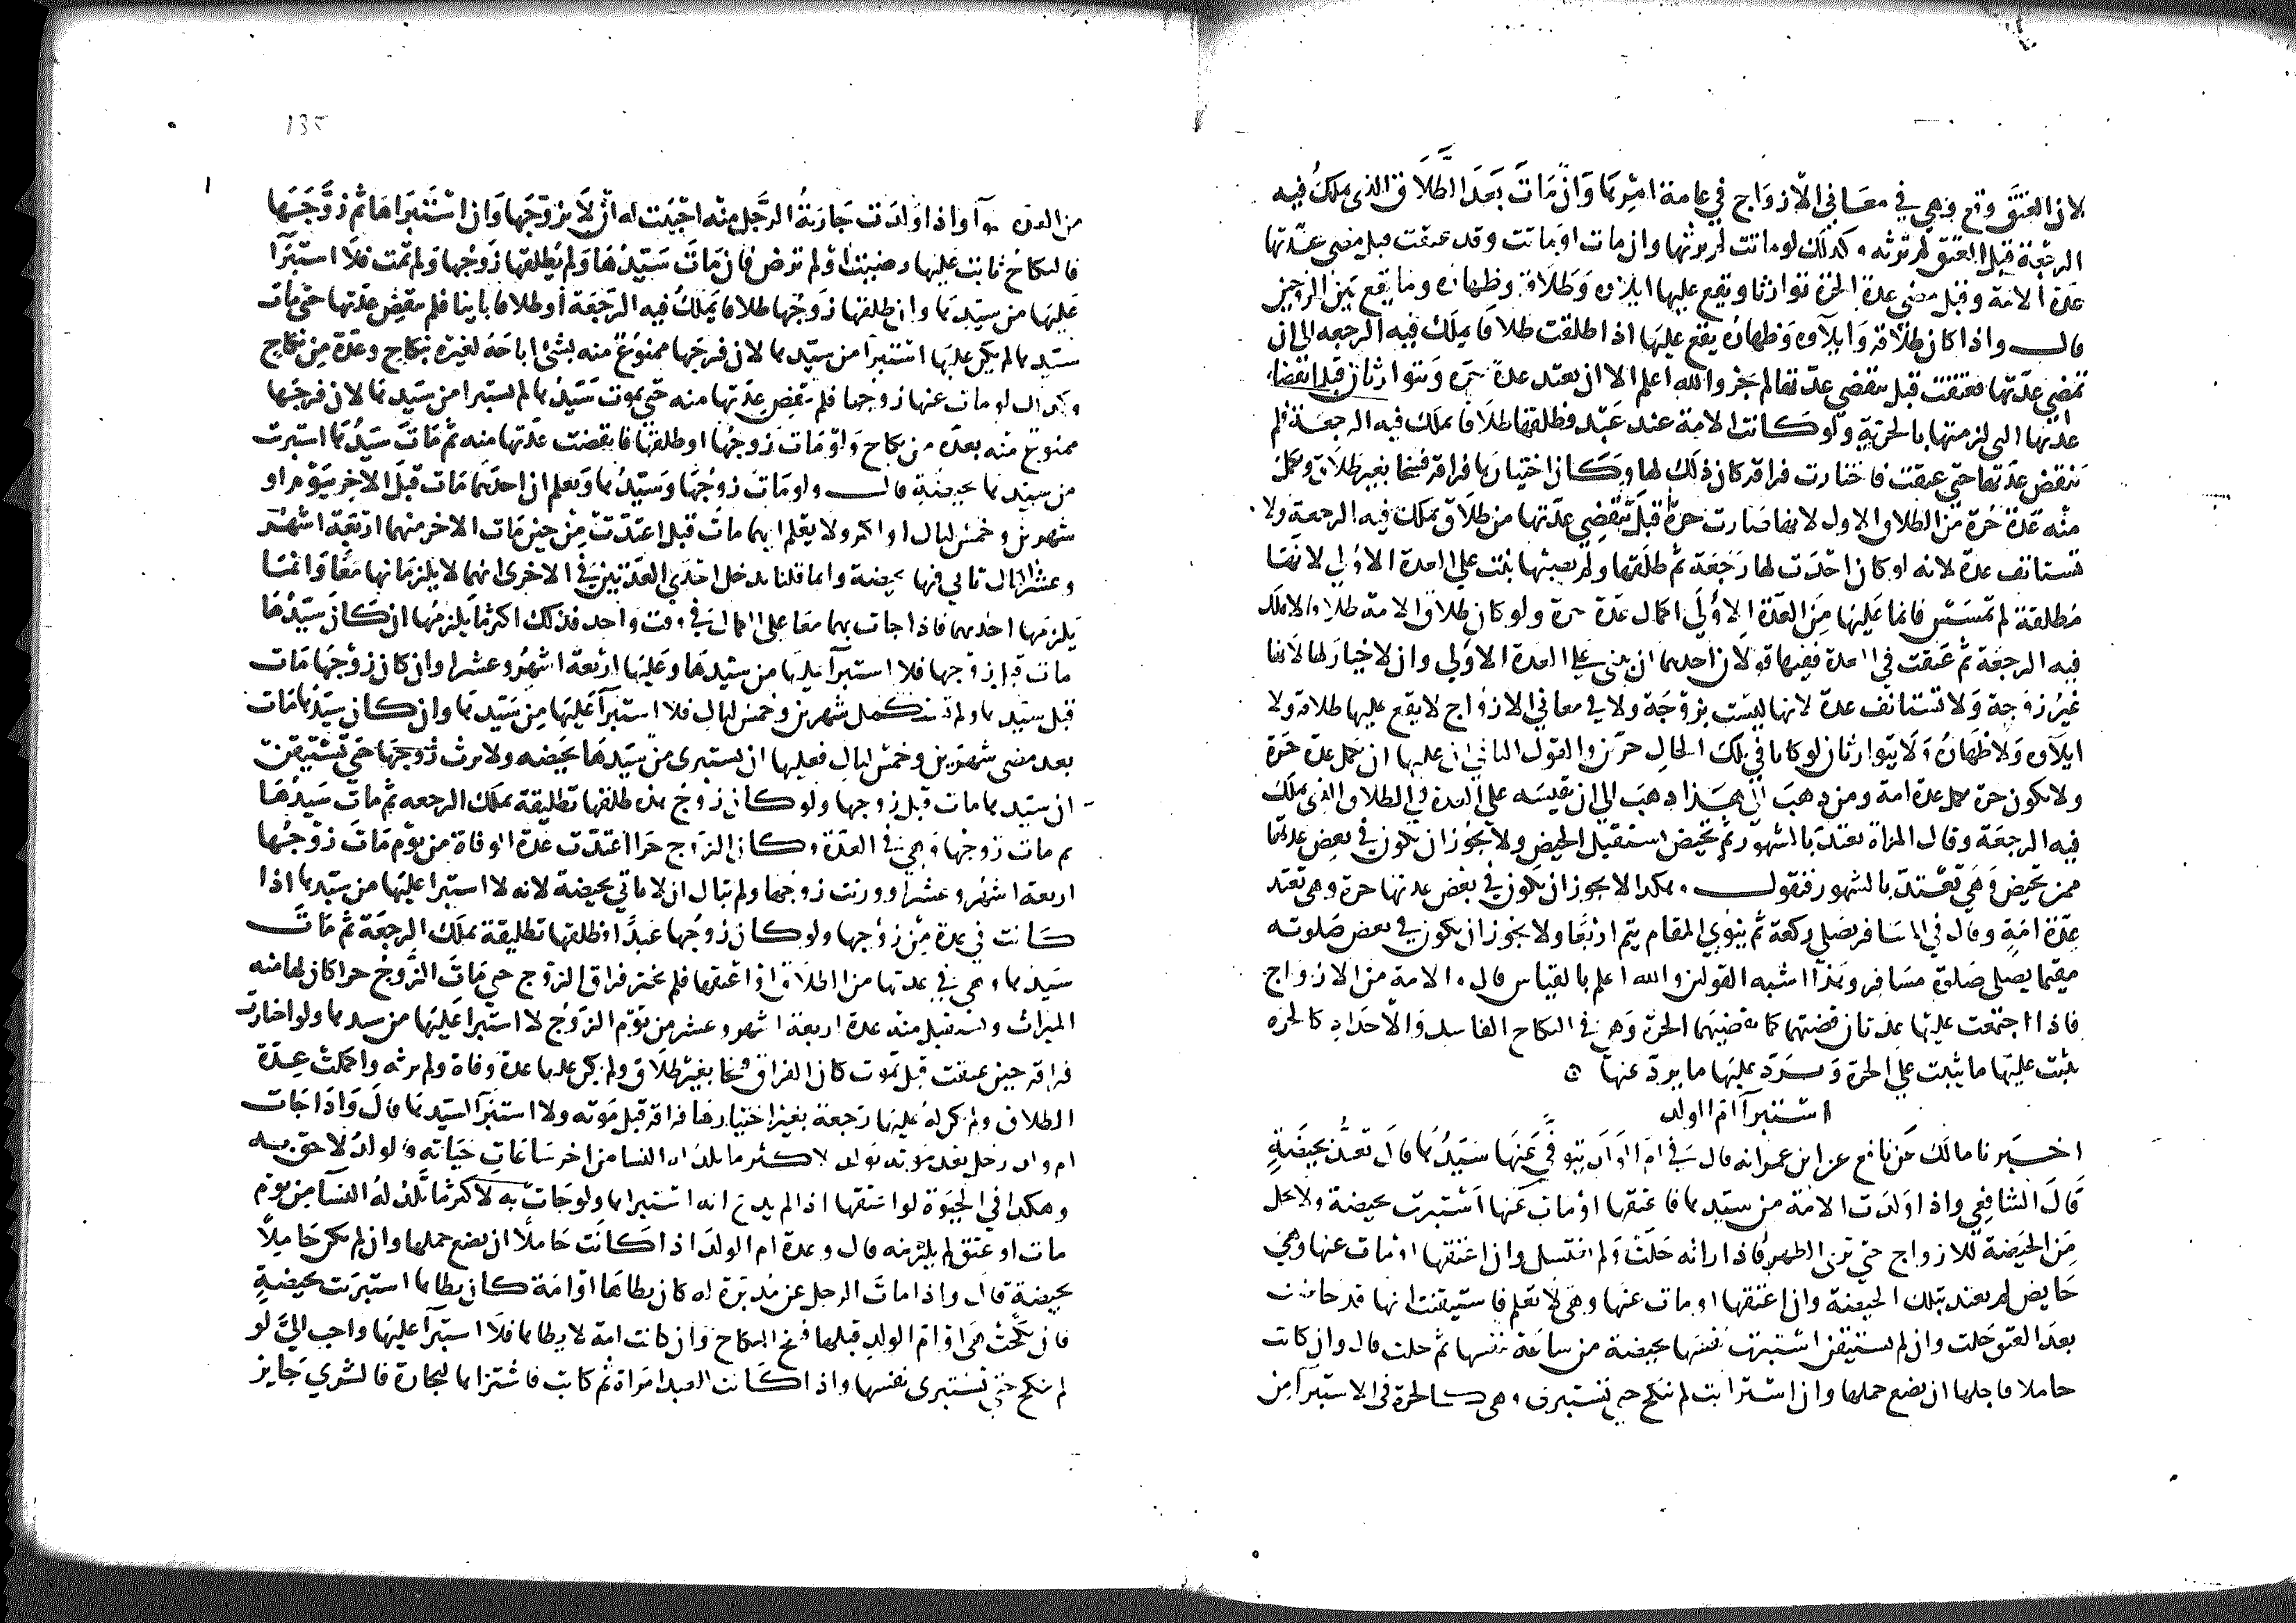 لان العتق وقع وهي في معاني الازواج في عامة امرها وان مات بعد الطلاق الذي يملك فيه
الرجعة قبل العتق لم ترثه وكذلك لو ماتت لم يرثها وان مات او ماتت وقد عتقت قبل مضي عدتها
عدة الامة وقبل مضي عدة الحرة توارثا ويقع عليها ايلاوه وطلاقه وظهاره وما يقع بين الزوجين
قال واذا كان طلاقه وايلاوه وظهاره يقع عليها اذا طلقت طلاقا يملك فيه الرجعه الى ان
تمضي عدتها فعتقت قبل تنقضي عدتها لم يجز والله اعلم الا ان تعتد عدة حرة ويتوارثان قبل انقضا
عدتها التي لزمتها بالحرية ولو كانت الامة عند عبد فطلقها طلاقا يملك فيه الرجعة فلم
تنقض عدتها حتى عتقت فاختارت فراقه كان ذلك لها وكان اختيارها فراقه فسخا بغير طلاق وتكمل
منه عدة حرة من الطلاق الاول لانها صارت حرة قبل تنقضي عدتها من طلاق يملك فيه الرجعة ولا
تستانف عدة لانه لو كان احدث لها رجعة ثم طلقها ولم يصبها بنت على العدة الاولى لانها
مطلقة لم تمسس فانما عليها من العدة الاولى اكمال عدة حرة ولو كان طلاق الامة طلاقا لا يملك
فيه الرجعة ثم عتقت في العدة ففيها قولان احدهما ان تبني على العدة الاولى وان لا خيار لها لانها
غير زوجة ولا تستانف عدة لانها ليست بزوجة ولا في معاني الازواج لا يقع عليها طلاقه ولا
ايلاوه ولا ظهاره ولا يتوارثان لو كانا في تلك الحال حرين والقول الثاني ان عليها ان تكمل عدة حرة
ولا تكون حرة تكمل عدة امة ومن ذهب الى هذا ذهب الى ان نقيسه على العدة في الطلاق الذي يملك
فيه الرجعة وقال المراة تعتد بالشهور ثم تحيض تستقبل الحيض ولا يجوز ان تكون في بعض عدتها
ممن تحيض وهي تعتد بالشهور فنقول وهكذا لا يجوز ان تكون في بعض عدتها حرة وهي تعتد
عدة امة وقال في المسافر يصلي ركعة ثم ينوي المقام يتم اربعا ولا يجوز ان يكون في بعض صلوته
مقيما يصلي صلوة مسافر وهذا اشبه القولين والله اعلم بالقياس قال والامة من الازواج
فاذا اجتمعت عليها عدتان قضتهما كما تقضيهما الحرة وهي في النكاح الفاسد والاحداد كالحرة
يثبت عليها ما يثبت على الحرة ويرد عليها ما يرد عنها
استبرا ام الولد
اخبرنا مالك عن نافع عن ابن عمر انه قال في ام الولد يتوفى عنها سيدها قال تعتد بحيضة
قال الشافعي واذا ولدت الامة من سيدها فاعتقها او مات عنها استبرت بحيضة ولا تحل
من الحيضة للازواج حتى ترى الطهر فاذا راته حلت ولم تغتسل وان اعتقها او مات عنها وهي
حايض لم تعتد بتلك الحيضة وان اعتقها او مات عنها وهي لا تعلم فاستيقنت انها قد حاضت
بعد العتق حلت وان لم تستيقن استبرت نفسها بحيضة من ساعة نفسها ثم حلت قال وان كانت
حاملا فاجلها ان تضع حملها وان استرابت لم تنكح حتى تستبري وهي كالحرة في الاستبرا من
135
من العدة واذا ولدت جارية الرجل منه احببت له ان لا يزوجها وان استبراها ثم زوجها
فالنكاح ثابت عليها رضيت او لم ترض فان مات سيدها ولم يطلقها زوجها ولم يمت فلا استبرا
عليها من سيدها وان طلقها زوجها طلاقا يملك فيه الرجعة او طلاقا باينا فلم تنقض عدتها حتى مات
سيدها لم يكن عليها استبرا من سيدها لان فرجها ممنوع منه بشي اباحه لغيره بنكاح وعدة من نكاح
وكذلك لو مات عنها زوجها فلم تنقض عدتها منه حتى يموت سيدها لم تستبرا من سيدها لان فرجها
ممنوع منه بعدة من نكاح ولو مات زوجها او طلقها فانقضت عدتها منه ثم مات سيدها استبرت
من سيدها بحيضة قال ولو مات زوجها وسيدها ويعلم ان احدهما مات قبل الاخر بيوم او
شهرين وخمس ليال او اكثر ولا يعلم ايهما مات قبل اعتدت من حين مات الاخر منهما اربعة اشهر
وعشرا تاتي فيها بحيضة وانما قلنا ندخل احدى العدتين في الاخرى انهما لا يلزمانها معا وانما
يلزمها احدهما فاذا جات بهما معا على الكمال في وقت واحد فذلك اكثر ما يلزمها ان كان سيدها
مات قبل زوجها فلا استبرا عليها من سيدها وعليها اربعة اشهر وعشرا وان كان زوجها مات
قبل سيدها ولم تستكمل شهرين وخمس ليال فلا استبرا عليها من سيدها وان كان سيدها مات
بعد مضي شهرين وخمس ليال فعليها ان تستبري من سيدها بحيضه ولا ترث زوجها حتى تستيقن
ان سيدها مات قبل زوجها ولو كان زوج هذه طلقها تطليقة يملك الرجعه ثم مات سيدها
ثم مات زوجها وهي في العدة وكان الزوج حرا اعتدت عدة الوفاة من يوم مات زوجها
اربعة اشهر وعشرا وورثت زوجها ولم تبال ان لا تاتي بحيضة لانه لا استبرا عليها من سيدها اذا
كانت في عدة من زوجها ولو كان زوجها عبدا فطلقها تطليقة يملك الرجعة ثم مات
سيدها وهي في عدتها من الطلاق او اعتقها فلم تختر فراق الزوج حتى مات الزوج حرا كان لها منه
الميراث وتستقبل منه عدة اربعة اشهر وعشر من يوم الزوج لا استبرا عليها من سيدها ولو اختارت
فراقه حين عتقت قبل تموت كان الفراق فسخا بغير طلاق ولم يكن عليها عدة وفاة ولم ترثه واكملت عدة
الطلاق ولم يكن له عليها رجعة بغير اختيارها فراقه قبل موته ولا استبرا لسيدها قال واذا جات
ام ولد رجل بعد موته بولد لاكثر ما تلد له النسا من اخر ساعات حياته فالولد لاحق به
وهكذا في الحيوة لو اعتقها اذا لم يدع انه استبراها ولو جات به لاكثر ما تلد له النسا من يوم
مات او عتق لم يلزمه قال وعدة ام الولد اذا كانت حاملا ان تضع حملها وان لم تكن حاملا
بحيضة قال واذا مات الرجل عن مدبرة له كان يطاها او امة كان يطاها استبرت بحيضة
فان نكحت هي او ام الولد قبلها فسخ النكاح وان كانت امة لا يطاها فلا استبرا عليها واحب الي لو
لم تنكح حتى تستبري نفسها واذا كانت للعبد امراة ثم كاتب فاشتراها للتجارة فالشرى جايز